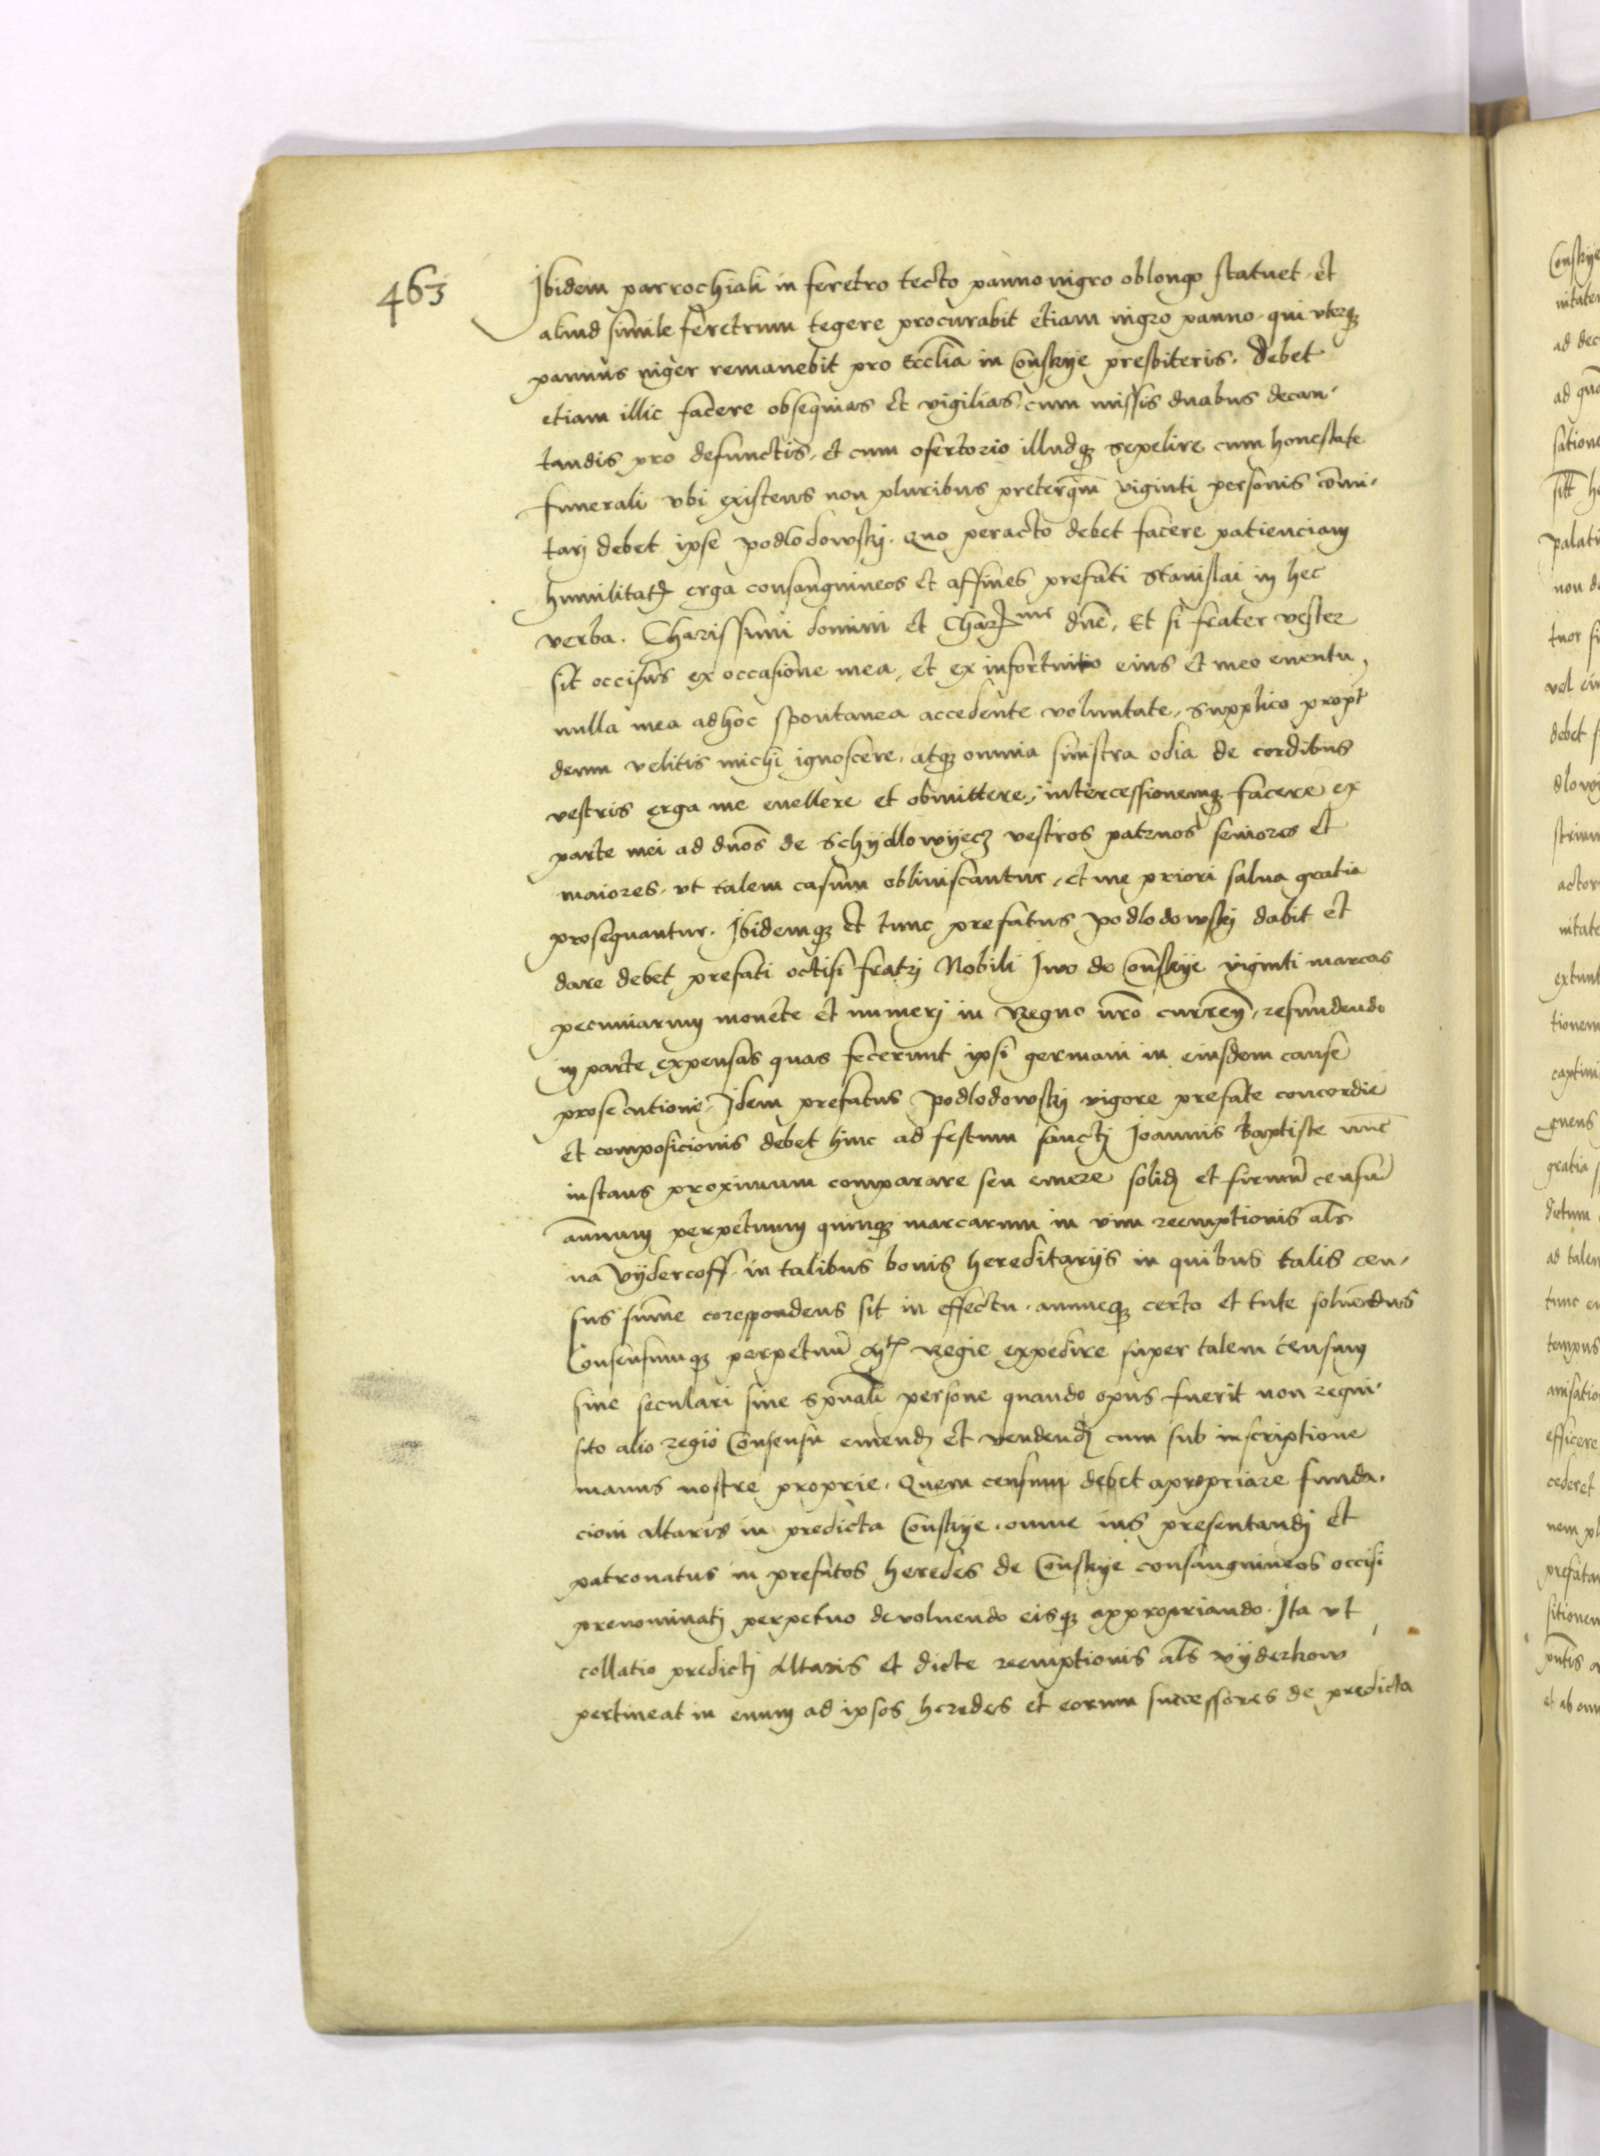 463
Ibidem parrochiali in feretro tecto panno nigro oblongo statuet et
aliud simile feretrum tegere procurabit etiam nigro panno, qui uterq3
pannus niger remanebit pro Ecclia in Conskije presbiteris. Debet
etiam illic facere obsequias et vigilias, cum missis duabus decan-
tandis pro defunctis, et cum ofertorio illudq3 sepelire cum honestate
funerali ubi existens non pluribus preterqm viginti personis comi-
tarj debet ipse podlodowskj. Quo peracto debet facere patienciam
humilitatis erga consanguineos et affines prefati Stanislai in hec
verba. Charissimi domini et Charme dne, Et si frater vester
sit occisus ex occasione mea, et ex infortunio eius et meo euentu,
nulla mea adhoc spontanea accedente voluntate, supplico propt
deum velitis michi ignoscere, atq3 omnia sinistra odia de cordibus
vestris erga me euellere et obmittere, intercessionemq3 facere ex
parte mei ad dnos de Schydlowijecz vestros patruos seniores et
maiores, ut talem casum obliuiscantur, et me priori salua gratia
prosequantur. Ibidemq3 et tunc prefatus podlodowskj dabit et
dare debet prefati occisi fratrj Nobili Iwo de Conskije viginti marcas
pecuniarum monete et numerj in Regno nro curren, refundendo
in parte expensas quas fecerunt ipsi germani in eiusdem cause
prosecutione, Idem prefatus podlodowskj vigore prefate concordie
et composicionis debet hinc ad festum sanctj Joannis baptiste nunc
instans proximum comparare seu emere solid et firmu censu
annuum perpetuum quinq3 marcarum in vim reemptionis als
na vijdercoff in talibus bonis hereditarijs in quibus talis cen-
sus summe corespondens sit in effectu, annueq3 certo et tute soluendus
Consensumq3 perpetuu Mtis Regie expedire super talem censum
siue seculari siue spuali persone quando opus fuerit non requi-
sito alio regio Consensu emendj et vendendj cum sub inscriptione
manus nostre proprie. Quem censum debet apropriare funda-
cioni altaris in predicta Conskije, omne ius presentandj et
patronatus in prefatos heredes de Conskije consanguineos occisi
prenominatj perpetuo deuoluendo eisq3 appropriando. Ita ut
collatio predictj altaris et dicte reemptionis als vijderkow
pertineat in euum ad ipsos heredes et eorum successores de predicta